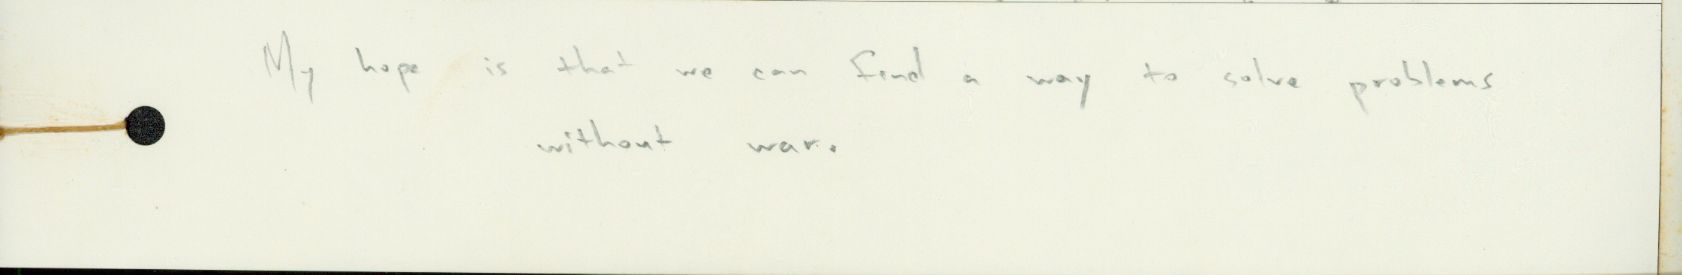 My hope is that we can find a way to solve problems
without war.